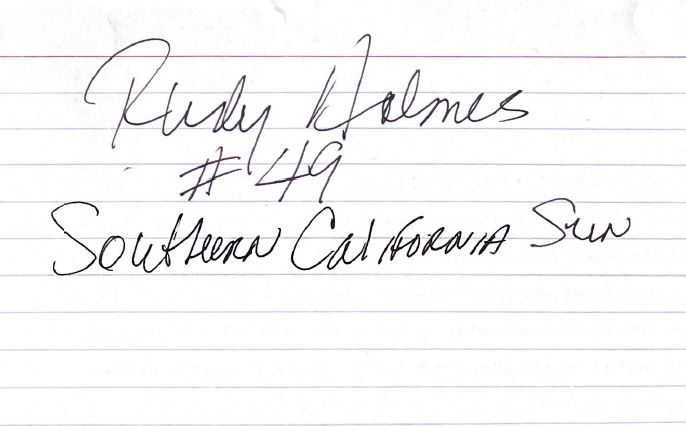 Rudy Holmes
# 49
Southern California Sun